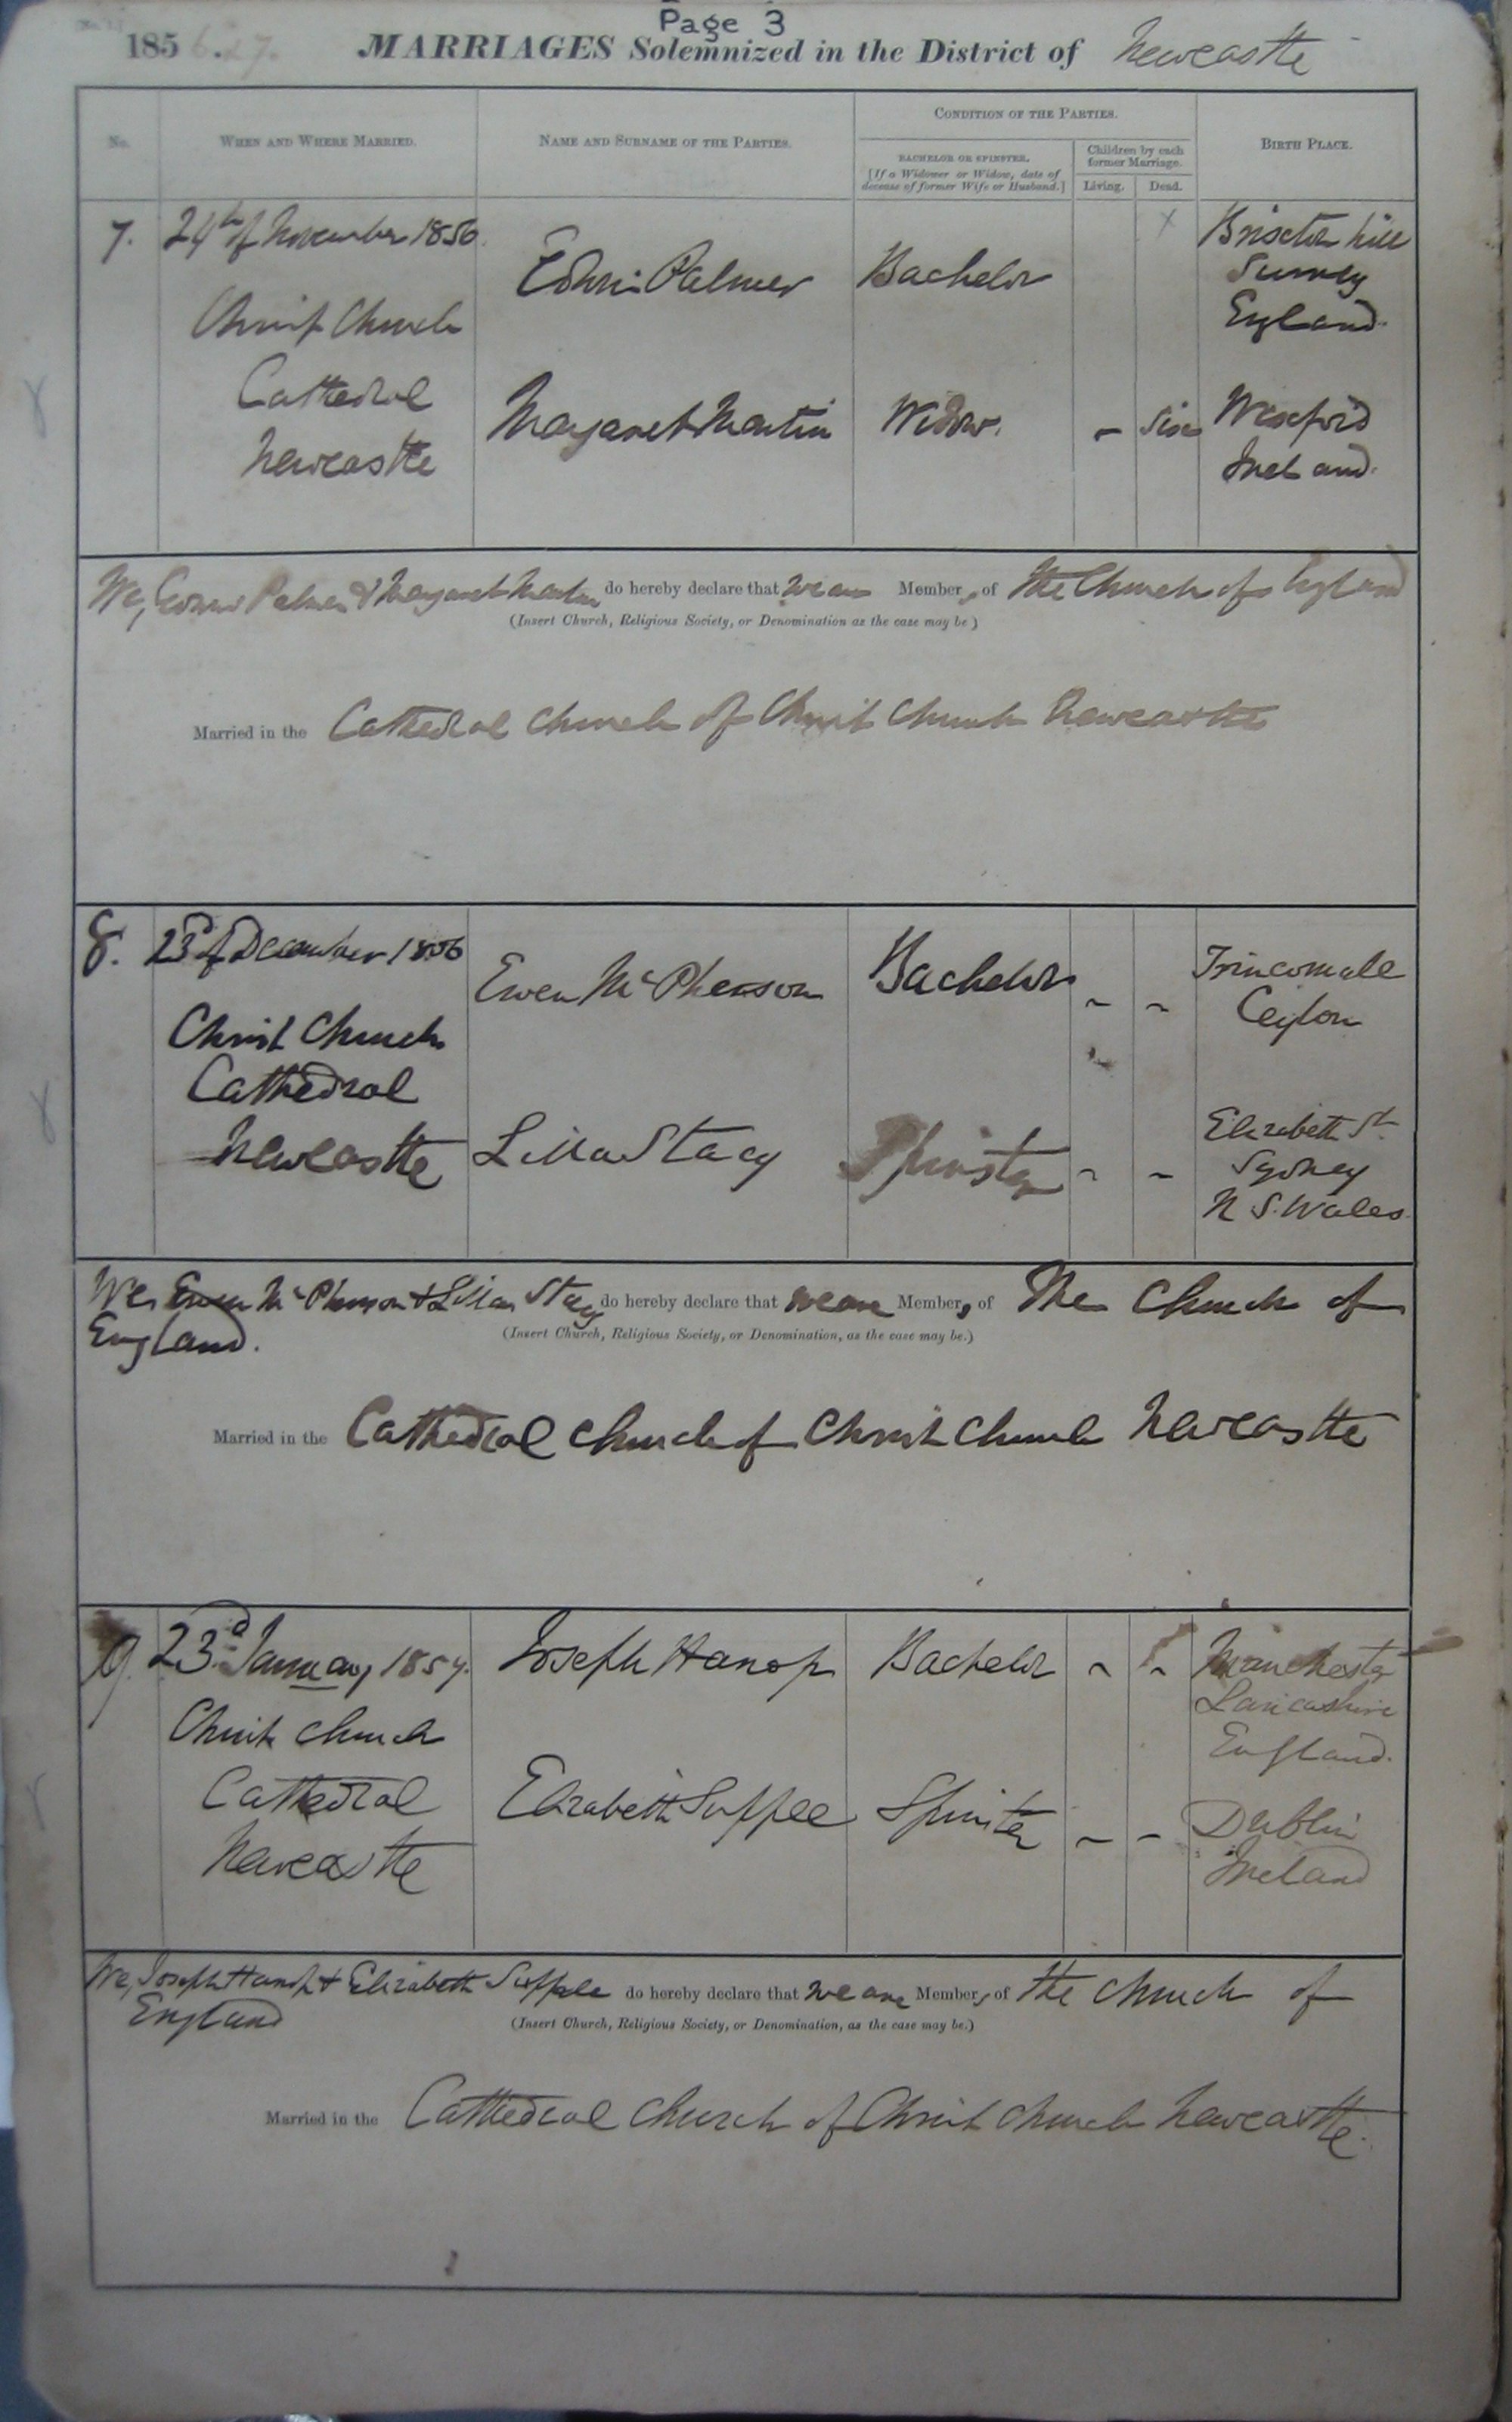 Page 3
185 6.&7. MARRIAGES Solemnized in the District of Newcastle
No.
WHEN AND WHERE MARRIED.
NAME AND SURNAME OF THE PARTIES.
CONDITION OF THE PARTIES.
BACHELOR OR SPINSTER.
[If a Widower or Widow, date of
decease of former Wife or Husband.]
Children by each
former Marriage.
Living.
Dead.
BIRTH PLACE.
7.
24th of November 1856
Christ Church
Cathedral
Newcastle
Edwin Palmer
Bachelor
x
Brixton hill
Surrey
England
Margaret Martin
Widow.
-
Six
Wexford
Ireland.
We, Edwin Palmer & Margaret Martin do hereby declare that we are Members of the Church of England
(Insert Church, Religious Society, or Denomination as the case may be)
Married in the Cathedral Church of Christ Church Newcastle
8.
23d of December 1856
Christ Church
Cathedral
Newcastle
Ewen McPherson
Bachelor
-
-
Trincomale
Ceylon
Lilla Stacy
Spinster
-
-
Elizabeth St
Sydney
N S. Wales.
We, Ewen McPherson & Lilla Stacy do hereby declare that we are Members of The Church of
England.
(Insert Church, Religious Society, or Denomination, as the case may be.)
Married in the Cathedral Church of Christ Church Newcastle
9.
23d January 1857.
Christ Church
Cathedral
Newcastle
Joseph Hanop
Bachelor
-
-
Manchester
Lancashire
England.
Elizabeth Supple
Spinster
-
-
Dublin
Ireland
We, Joseph Hanop & Elizabeth Supple do hereby declare that we are Members of the Church of
England
(Insert Church, Religious Society, or Denomination, as the case may be.)
Married in the Cathedral Church of Christ Church Newcastle.